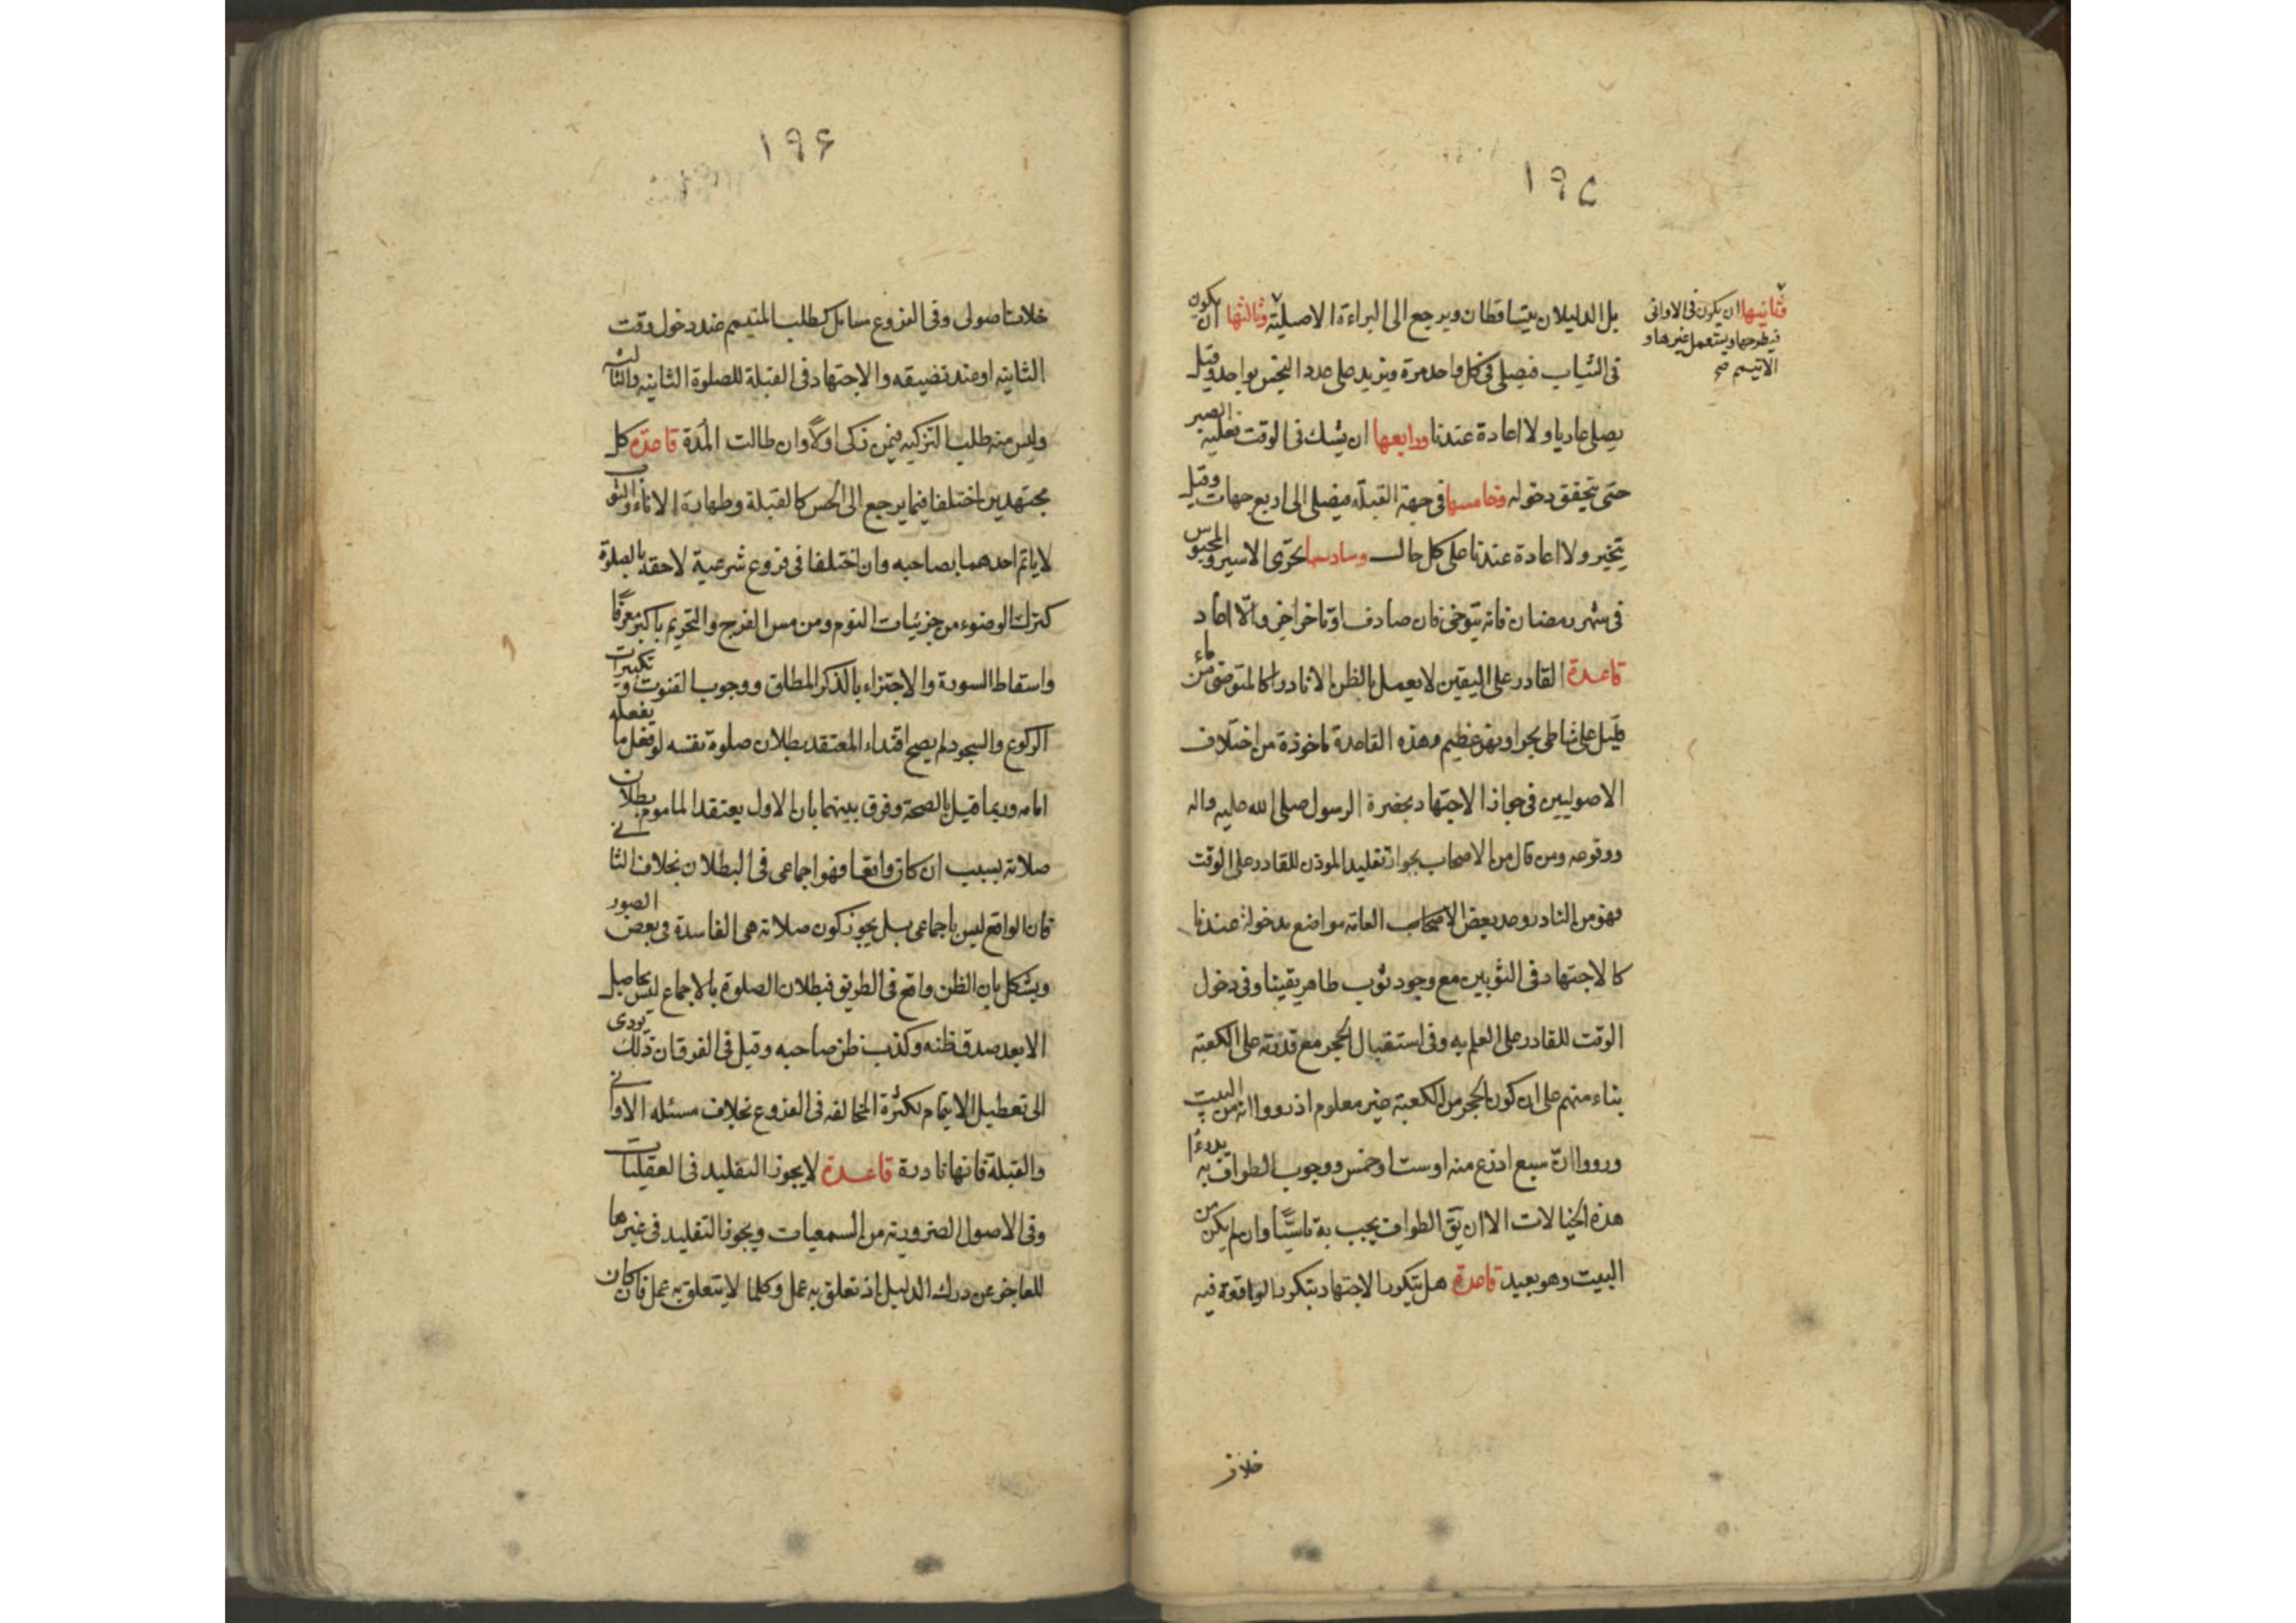 ١٩٥
بل الدليلان يتساقطان ويرجع الى البراءة الاصلية وثالثها ان يكون
ثانيها ان يكون فى الاوانى
فيطرحها ويستعمل غيرها و
الا تيمم صح
فى الثياب فيصلى فى كل واحد مرة ويزيد على عدد النجس بواحد وقيل
يصلى عاريا ولا اعادة عندنا ورابعها ان يشك فى الوقت فعليه الصبر
حتى يتحقق دخوله وخامسها فى جهة القبلة فيصلى الى اربع جهات وقيل
يتخير ولا اعادة عندنا على كل حال وسادسها تحرى الاسير والمحبوس
فى شهر رمضان فانه يتوخى فان صادف او تاخر اجزء والا اعاد
قاعدة القادر على اليقين لا يعمل بالظن الا نادرا كالمتوضى من ماء
قليل على شاطى بحر او نهر عظيم وهذه القاعدة ماخوذة من اختلاف
الاصوليين فى جواز الاجتهاد بحضرة الرسول صلى الله عليه واله
ووقوعه ومن قال من الاصحاب بجواز تقليد الموذن للقادر على الوقت
فهو من النادر وعد بعض الاصحاب العامه مواضع مدخولة عندنا
كالاجتهاد فى الثوبين مع وجود ثوب طاهر يقينا وفى دخول
الوقت للقادر على العلم به وفى استقبال الحجر مع قدرته على الكعبة
بناء منهم على ان كون الحجر من الكعبة غير معلوم اذ رووا انه من البيت
ورووا ان سبع اذرع منه او ست او خمس ووجوب الطواف به يدرء
هذه الخيالات الا ان يق الطواف يجب به تاسيا وان لم يكن من
البيت وهو بعيد قاعدة هل يتكرر الاجتهاد بتكرر الواقعة فيه
خلاف
١٩۶
خلاف اصولى وفى الفروع مسايل كطلب المتيمم عند دخول وقت
الثانيه او عند تضيقه والاجتهاد فى القبلة للصلوة الثانيه والثالثة
وليس منه طلب التزكيه فيمن زكى اولا وان طالت المدة قاعدة كل
مجتهدين اختلفا فيما يرجع الى الحس كالقبلة وطهارة الاناء والثوب
لا ياتم احدهما بصاحبه وان اختلفا فى فروع شرعية لاحقة بالصلوة
كترك الوضوء من جزئيات النوم ومن مس الفرج والتحريم باكبر معرفا
واسقاط السورة والاجتزاء بالذكر المطلق ووجوب القنوت وتكبيرات
الركوع والسجود لم يصح اقتداء المعتقد بطلان صلوة نفسه لو فعل ما يفعله
امامه وربما قيل بالصحة وفرق بينهما بان الاول يعتقد الماموم بطلان
صلاته بسبب ان كان واقعا فهو اجماعى فى البطلان بخلاف الثانى
فان الواقع ليس باجماعى بل يجوز كون صلاته هى الفاسدة فى بعض الصور
ويشكل بان الظن واقع فى الطريق فبطلان الصلوة بالاجماع ليس بحاصل
الا بعد صدق ظنه وكذب ظن صاحبه وقيل فى الفرق ان ذلك يودى
الى تعطيل الايتمام لكثرة المخالفه فى الفروع بخلاف مسئله الاوانى
والقبلة فانها نادرة قاعدة لا يجوز التقليد فى العقليات
وفى الاصول الضرورية من السمعيات ويجوز التقليد فى غيرها
للعاجز عن درك الدليل اذ تعلق به عمل وكلما لا يتعلق به عمل فان كان